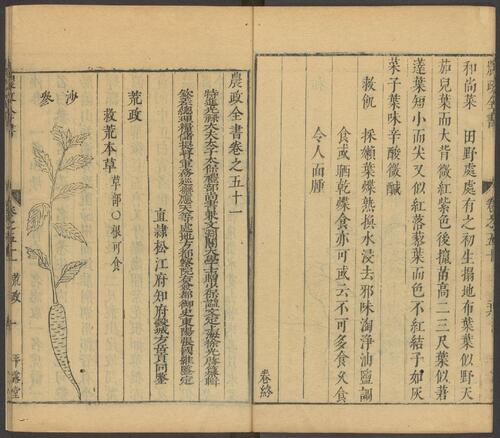 和尚菜 田野處處有之初生搨地布葉葉似野天
茄兒葉而大背微紅紫色後攛苗高二三尺葉似莙
薘葉短小而尖又似紅落藜葉而色不紅結子如灰
菜子葉味辛酸微鹹
救飢 採嫩葉煠熟換水浸去邪味淘淨油鹽調
食或晒乾煠食亦可或云不可多食久食
令人面腫
卷終
農政全書卷之五十一
特進光祿大夫太子太保禮部尚書兼文淵閣大學士贈少保諡文定上海徐光啓纂輯
欽差總理糧儲提督軍務巡撫應天等處地方都察院右僉都御史東陽張國維鑒定
直隸松江府知府穀城方岳貢同鑒
荒政
救荒本草 草部○根可食
沙參
農政全書
卷之五十一 荒政 一 平露堂